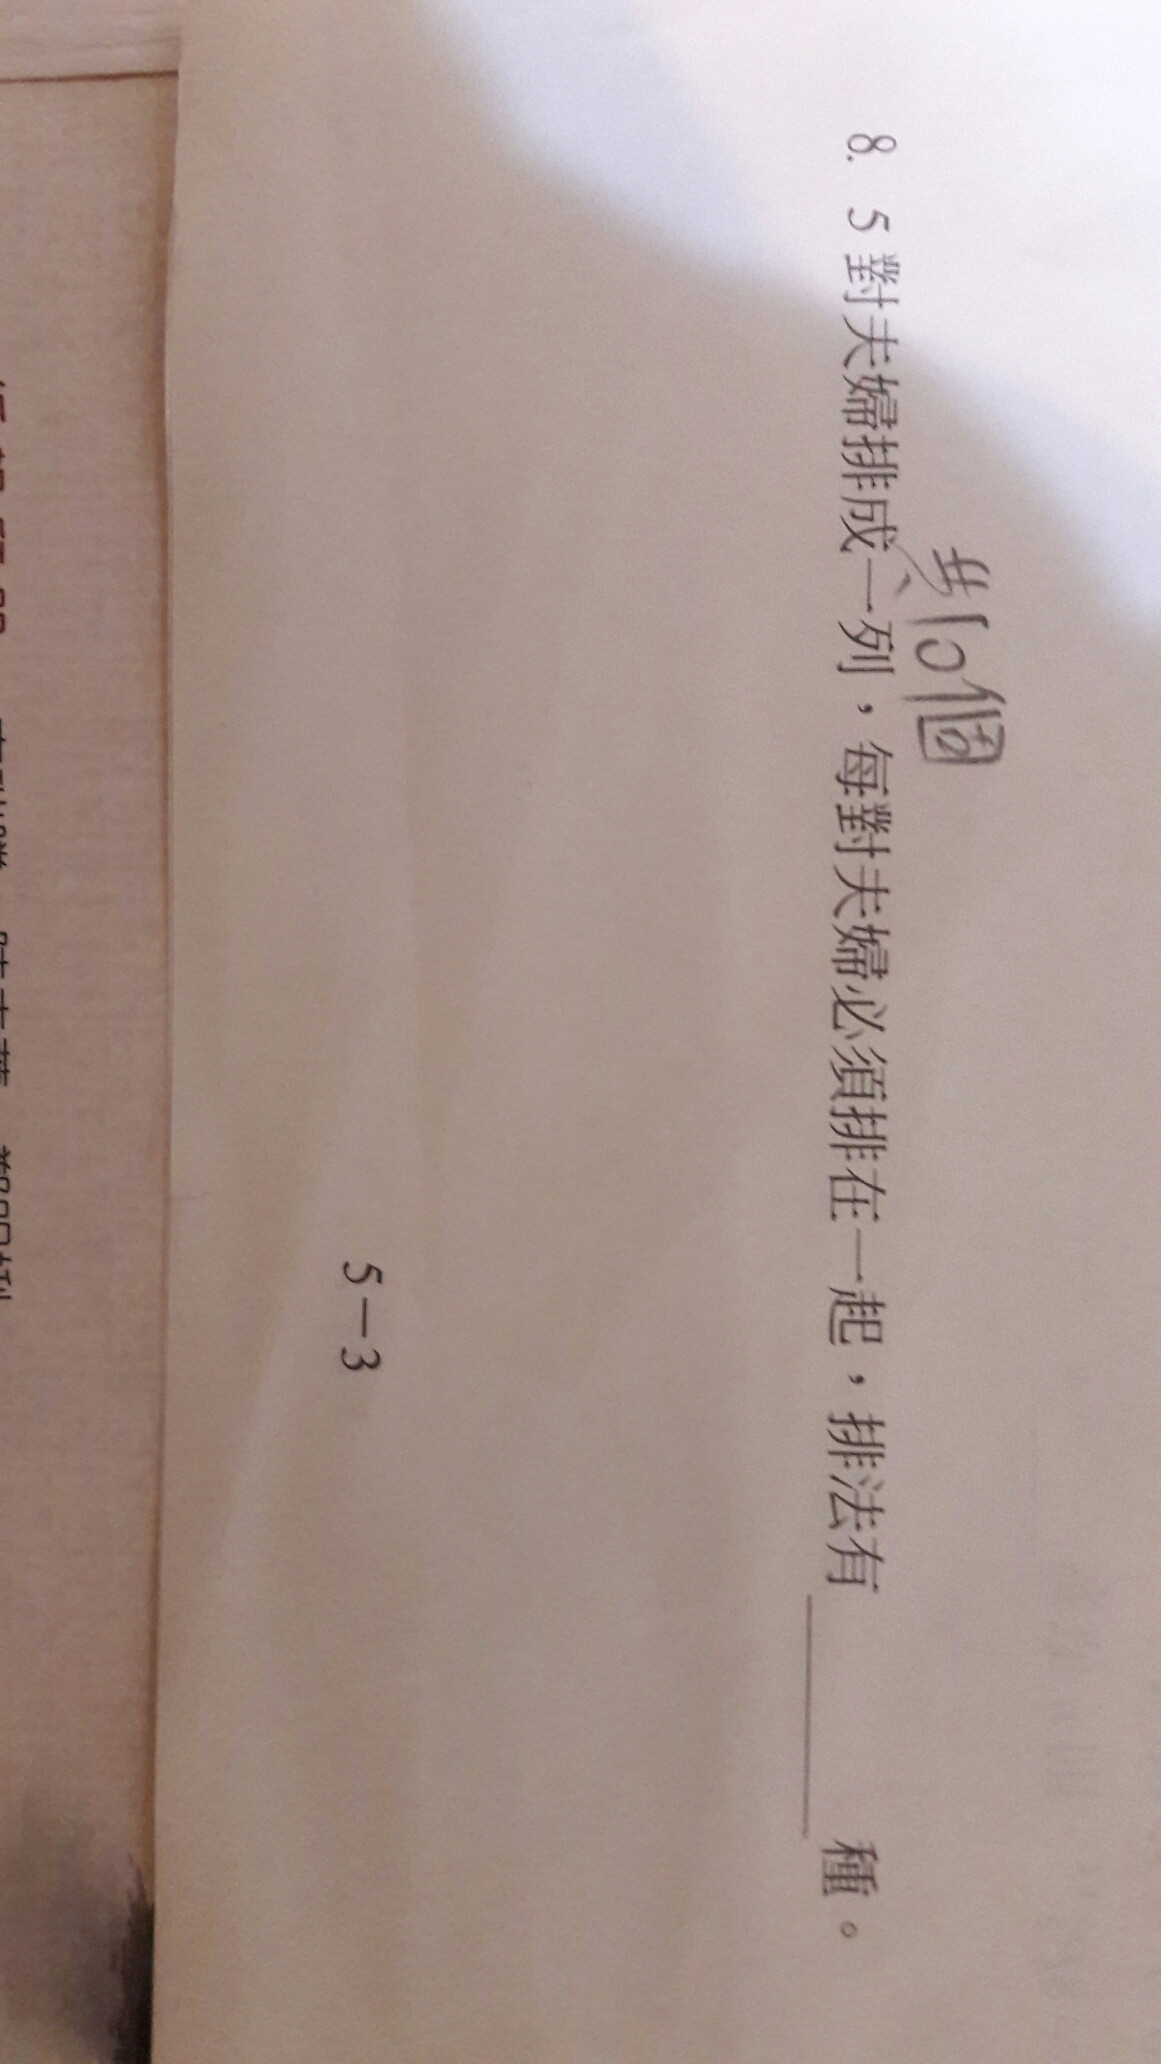 共10個
8. 5 對夫婦排成一列，每對夫婦必須排在一起，排法有______種。
5－3